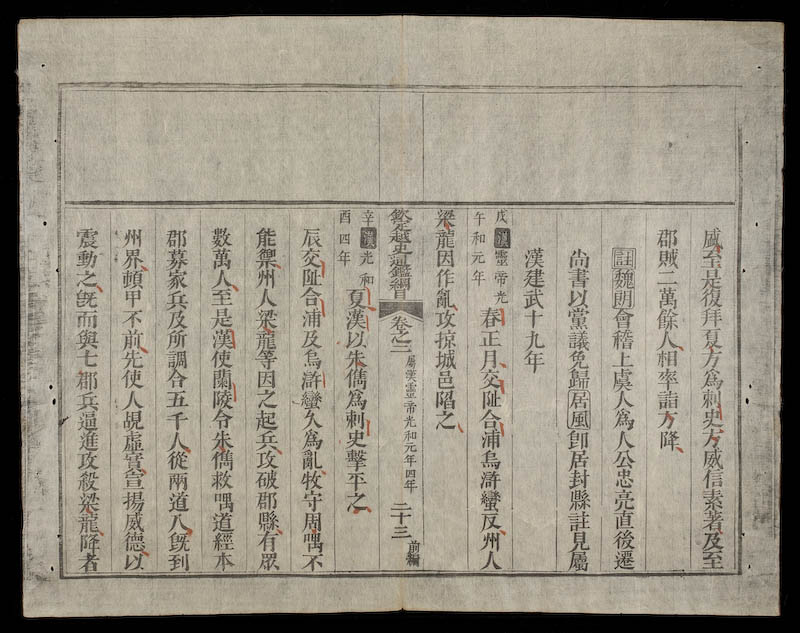 威至是復拜夏方爲刺史方威信素著及至
郡賊二萬餘人相率詣方降
註魏朗會稽上虞人爲人公忠亮直後遷
尚書以黨議免歸居風卽居封縣註見屬
漢建武十九年
戊午漢靈帝光和元年春正月交阯合浦烏滸蠻反州人
梁龍因作亂攻掠城邑陷之
欽定越史通鑑綱目 卷之二 屬漢靈帝光和元年四年 二十三 前編
辛酉漢光和四年夏漢以朱儁爲刺史擊平之
辰交阯合浦及烏滸蠻久爲亂牧守周喁不
能禦州人梁龍等因之起兵攻破郡縣有眾
數萬人至是漢使蘭陵令朱儁救喁道經本
郡募家兵及所調合五千人從兩道入旣到
州界頓甲不前先使人覘虛實宣揚威德以
震動之旣而與七郡兵逼進攻殺梁龍降者